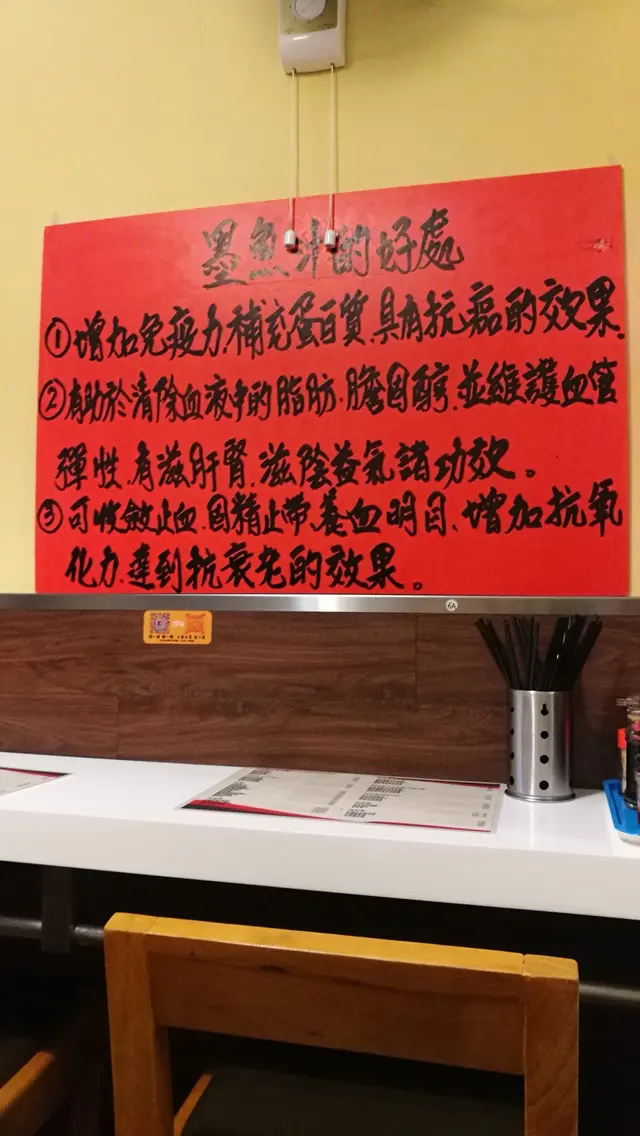 墨魚汁的好處
①增加免疫力、補充蛋白質、具有抗癌的效果.
②有助於清除血液中的脂肪、膽固醇、並維護血管
彈性、有滋肝腎、滋陰益氣諸功效。
③可收斂止血、固精止帶、養血明目、增加抗氧
化力、達到抗衰老的效果。
6A